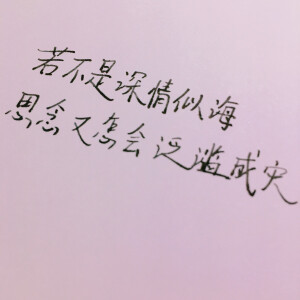 若不是深情似海
思念又怎会泛滥成灾